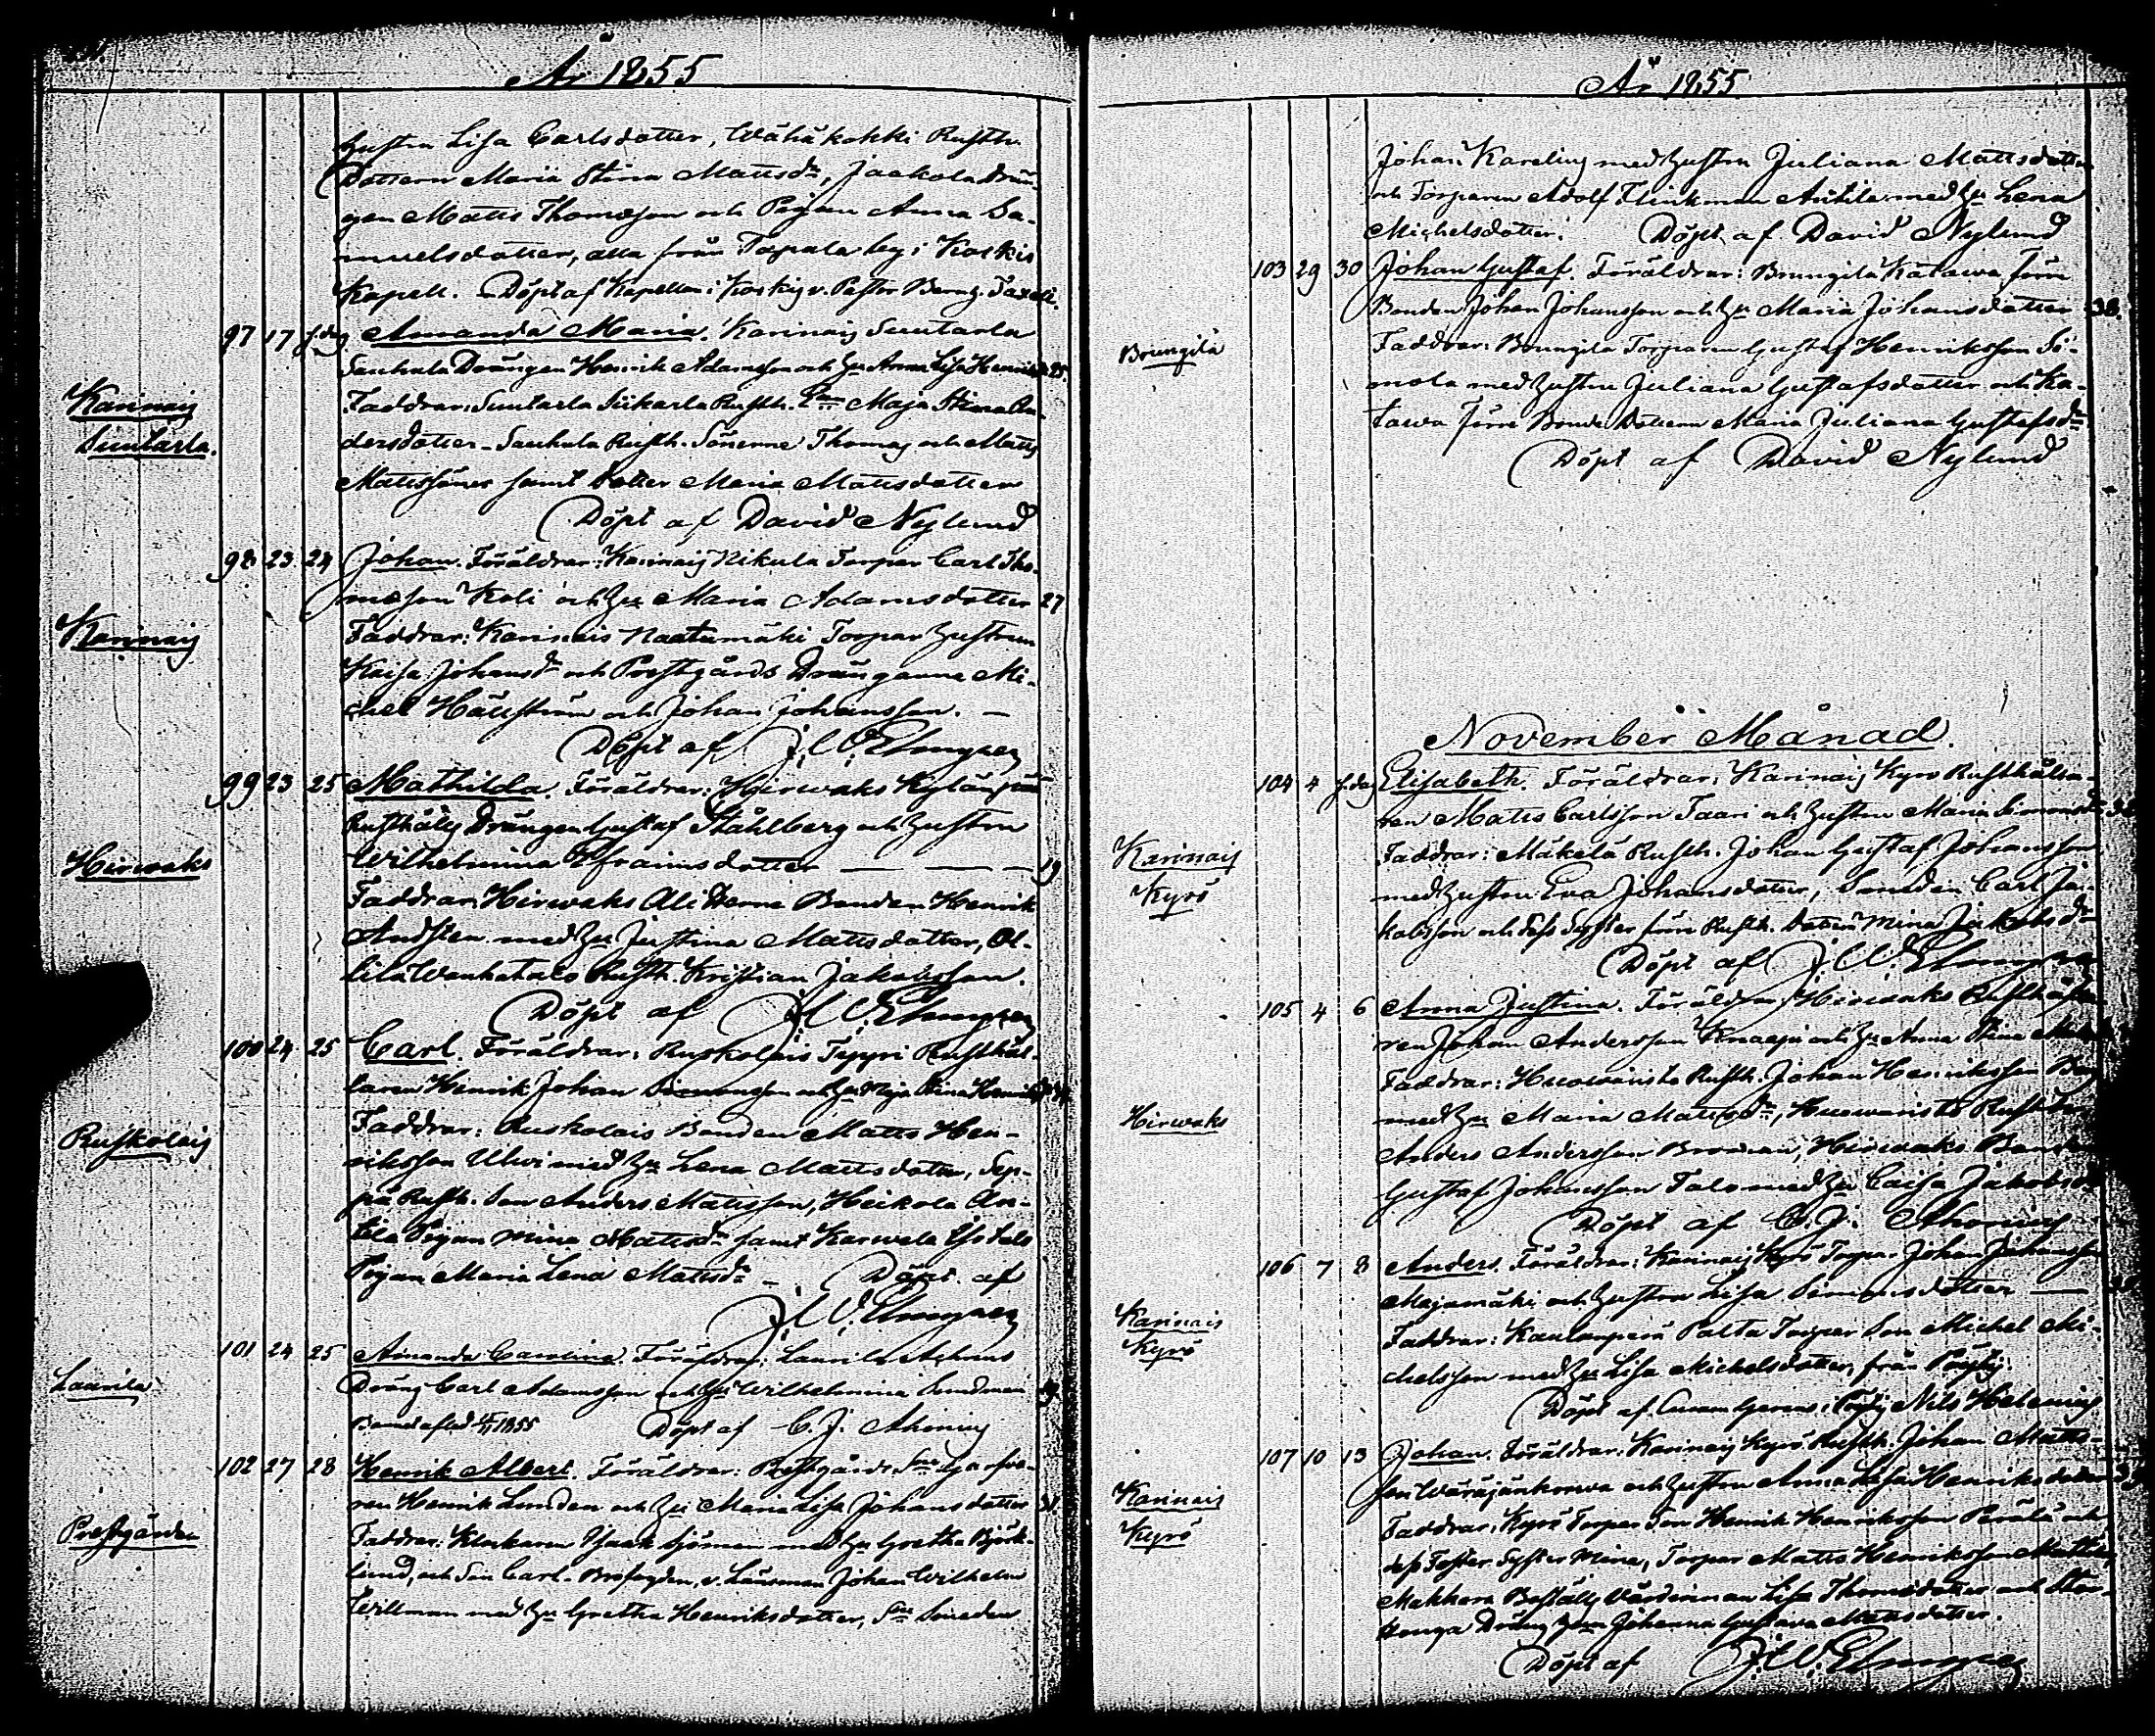 År 1855
hustru Lisa Carlsdotter, Wähäkokki Rusth.
Dottern Maria Stina Mattsdr, Jaakola Drän-
gen Matts Thomasson och Pigan Anna Sa-
muelsdotter, alla från Tapala by i Koskis
Kapell. Döpt af Kapellan i Koskis v. Pastor
97 17 f.dag Amanda Maria. Karinais Suutarla
Sauhula Drängen Henrik Adamsson och Hu Anna Lisa 25.
Karinais
Suutarla.
Faddrar: Suutarla Rusth. Maja Stina An-
dersdotter – Sauhula Rusth. Sönerne Thomas och Matts
Mattssöner samt Dotter Maria Mattsdotter
Döpt af David Nylund
98 23 24 Johan. Föräldrar: Karinais Nikula Torpar Carl Tho-
masson Koli och Hu Maria Adamsdotter 27
Karinais
Faddrar: Karinais Naatumäki Torpar hustrun
Kaisa Johansdr och Prestgårds Drängarne Mi-
chel Hällström och Johan Johansson. –
Döpt af J. W. Elmgren
99 23 25 Mathilda. Föräldrar: Hirwaks Kylänpää
Rusthålls Drängen Gustaf Ståhlberg och hustru
Wilhelmina Efraimsdotter 19
Hirwaks
Faddrar: Hirwaks Ali Herne Bonden Henrik
Andsten med Hu Justina Mattsdotter, Ol-
lila Wanhatalo Rusth. Kristian Jakobsson.
Döpt af J. W. Elmgren
100 24 25 Carl. Föräldrar: Ruskolais Teppri Rusthål-
laren Henrik Johan Simonsson och Hu Maja Stina
Ruskolais
Faddrar: Ruskolais Bonden Matts Hen-
riksson Ulvi med Hu Lena Mattsdotter, Sep-
pä Rusth. Son Anders Mattsson, Heikola An-
tila Pigan Mina Mattsdr samt Karwela
Pigan Maria Lena Mattsdr – Döpt af
J. W. Elmgren
101 24 25 Amanda Carolina. Föräldrar: Laurila
Laurila
Dräng Carl Adamsson och Hu Wilhelmina Sundman
Barnet aflad 1855 Döpt af C. J. Ahonius
102 27 28 Henrik Albert. Föräldrar: Prestgårds
ren Henrik Lunden och Hu Maria Lisa Johansdotter 31.
Prestgården
Faddrar: Klockaren Isaak Sjöman med Hu Gretha Björk-
lund, och Son Carl. Brofogden, v. Länsman Johan Wilhelm
Willman med Hu Gretha Henriksdotter, Smeden
År 1855
Johan Karelius med hustru Juliana Mattsdotter
och Torparen Adolf Flinkman Antila med Hu Lena
Michelsdotter. Döpt af David Nylund
103 29 30 Johan Gustaf. Föräldrar: Brungila Katawa
Bonden Johan Johansson och Hu Maria Johansdotter 38.
Brungila
Faddrar: Brungila Torparen Gustaf Henriksson Si-
mola med hustru Juliana Gustafsdotter och Ka-
tawa förre Bonde Dottern Maria Juliana Gustafsdr
Döpt af David Nylund
November Månad.
104 4 f.dag Elisabeth. Föräldrar: Karinais Kyro Rusthålla-
ren Matts Carlsson Taari och hustru Maria Simonsdr
Karinais
Kyrö
Faddrar: Mäkelä Rusth. Johan Gustaf Johansson
med hustru Eva Johansdotter, Smeden Carl Ja-
kobsson och dess Syster förre Rusth. Dottern Mina Jakobsdr
Döpt af J. W. Elmgren
105 4 6 Anna Justina. Föräldrar: Hirwaks Rusthålla-
ren Johan Andersson Knaapi och Hu Anna Stina
Hirwaks
Faddrar: Huowaristo Rusth. Johan Henriksson
med Hu Maria Mattsdr, Huowaristo Rusth.
Anders Andersson Broman, Hirwaks
Gustaf Johansson Talo med Hu Caisa Jakobsdr
Döpt af C. J. Ahonius
106 7 8 Anders. Föräldrar: Karinais Kyrö Torpar Johan Johansson
Majamäki och hustru Lisa Simonsdotter
Karinais
Kyrö
Faddrar: Kaulanperä Palta Torpar Son Michel Mi-
chelsson med Hu Lisa Michelsdotter, från Pöytis.
Döpt af Curam Gerens i Pöytis Nils Helenius
107 10 13 Johan. Föräldrar: Karinais Kyrö Rusth. Johan Matts-
son Wäräjänkorwa och hustru Anna Lisa Henriksdotter
Karinais
Kyrö
Faddrar: Kyrö Torpar Son Henrik Henriksson Perälä och
dess Foster Syster Mina, Torpar Matts Henriksson
Makkara Beställs Värdinnan Lisa Thomsdotter och Stor-
Honga Dräng Johanna Gustava Mattsdotter.
Döpt af J. W. Elmgren